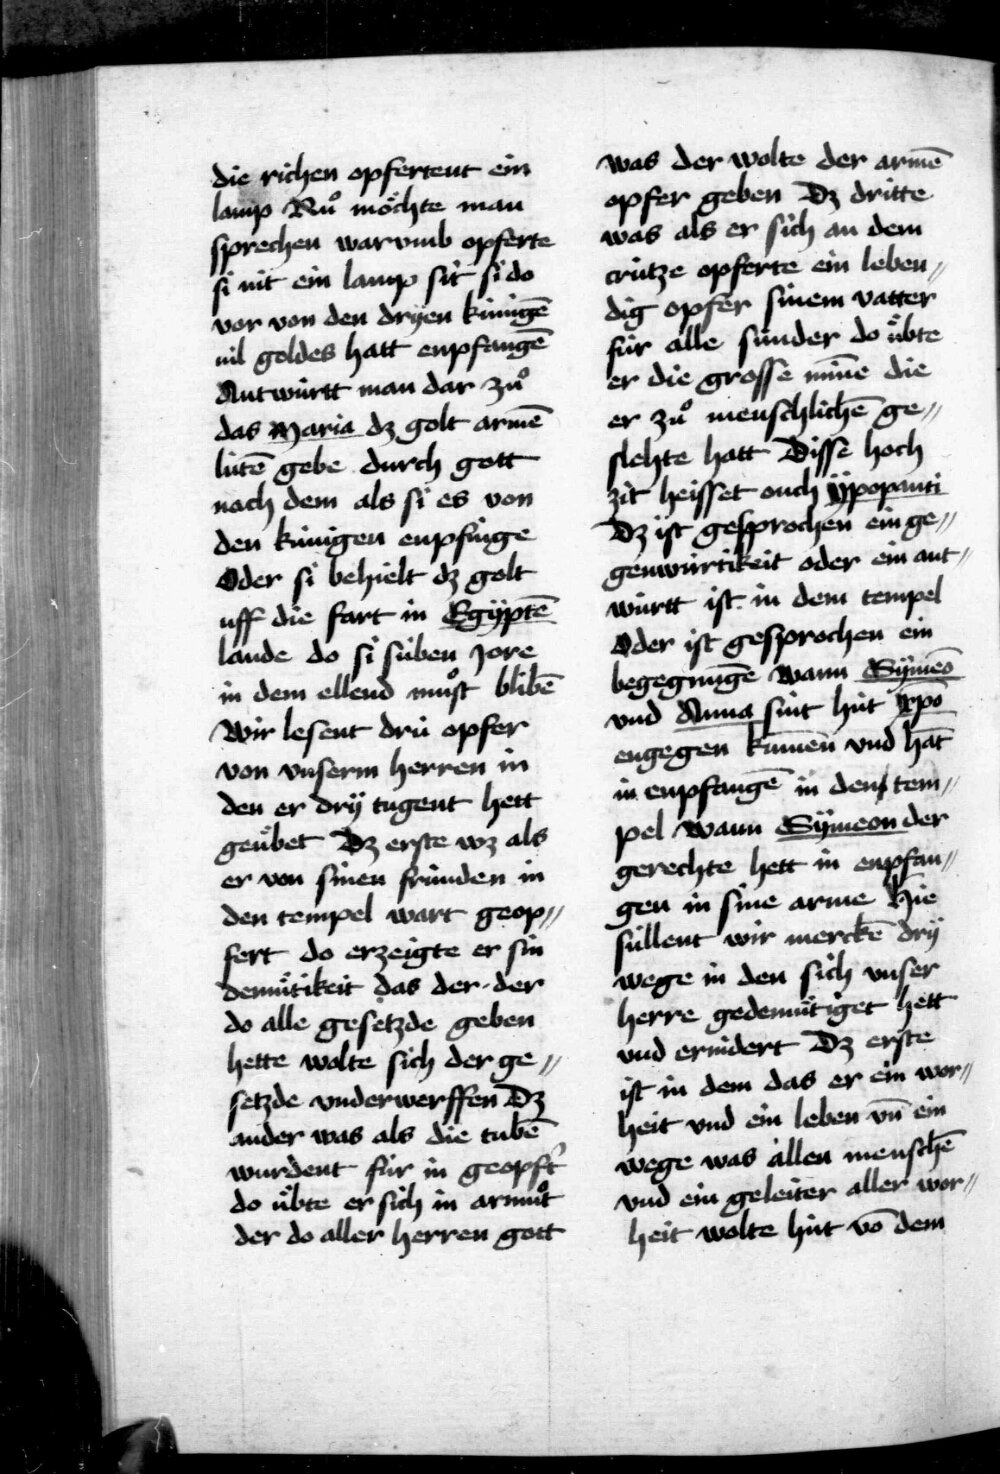 die richen opfertent ein
lamp Nuͦ moͤchte man
sprechen warvmb opferte
si nit ein lamp sit si do
vor von den dryen kúnigē
vil goldes hatt enpfangē
Antwúrtt man dar zuͦ
das Maria dz golt armē
lútē gebe durch gott
nach dem als si es von
den kúnigen enpfinge
Oder si behielt dz golt
uff die fart in Egÿptē
lande do si súben Jore
in dem ellend muͦst blibē
Wir lesent drú opfer
von vnserm herren in
den er drÿ tugent hett
geuͤbet Dz erste wz als
er von sinen frúnden in
den tempel wart geop〃
fert do erzeigte er sin
demuͤtikeit das der der
do alle gesetzde geben
hette wolte sich der ge〃
setzde vnderwerffen Dz
ander was als die tubē
wurdent fúr in geopft͛
do uͤbte er sich in armuͦt
der do aller herren gott
was der wolte der armē
opfer geben Dz dritte
was als er sich an dem
crútze opferte ein leben〃
dig opfer sinem vatter
fúr alle súnder do uͤbte
er die grosse miñe die
er zuͦ menschlichē ge〃
slehte hatt Disse hoch
zit heisset ouch ÿpopanti
Dz ist gesprochen ein ge〃
genwúrtikeit oder ein ant〃
wúrtt ist in dem tempel
Oder ist gesprochen ein
begegnungē Wann Sÿmeō
vnd Anna sint hút xp̄o
engegen kum̄en vnd hāt
in enpfangē in dem tem〃
pel Wann Sÿmeon der
gerechte hett in enpfan〃
gen in sine arme Hie
súllent wir merckē drÿ
wege in den sich vnser
herre gedemuͤtiget hett
vnd ernidert Dz erste
ist in dem das er ein wor〃
heit vnd ein leben vn̄ ein
wege was allen menschē
vnd ein geleiter aller wor〃
heit wolte hút vō dem